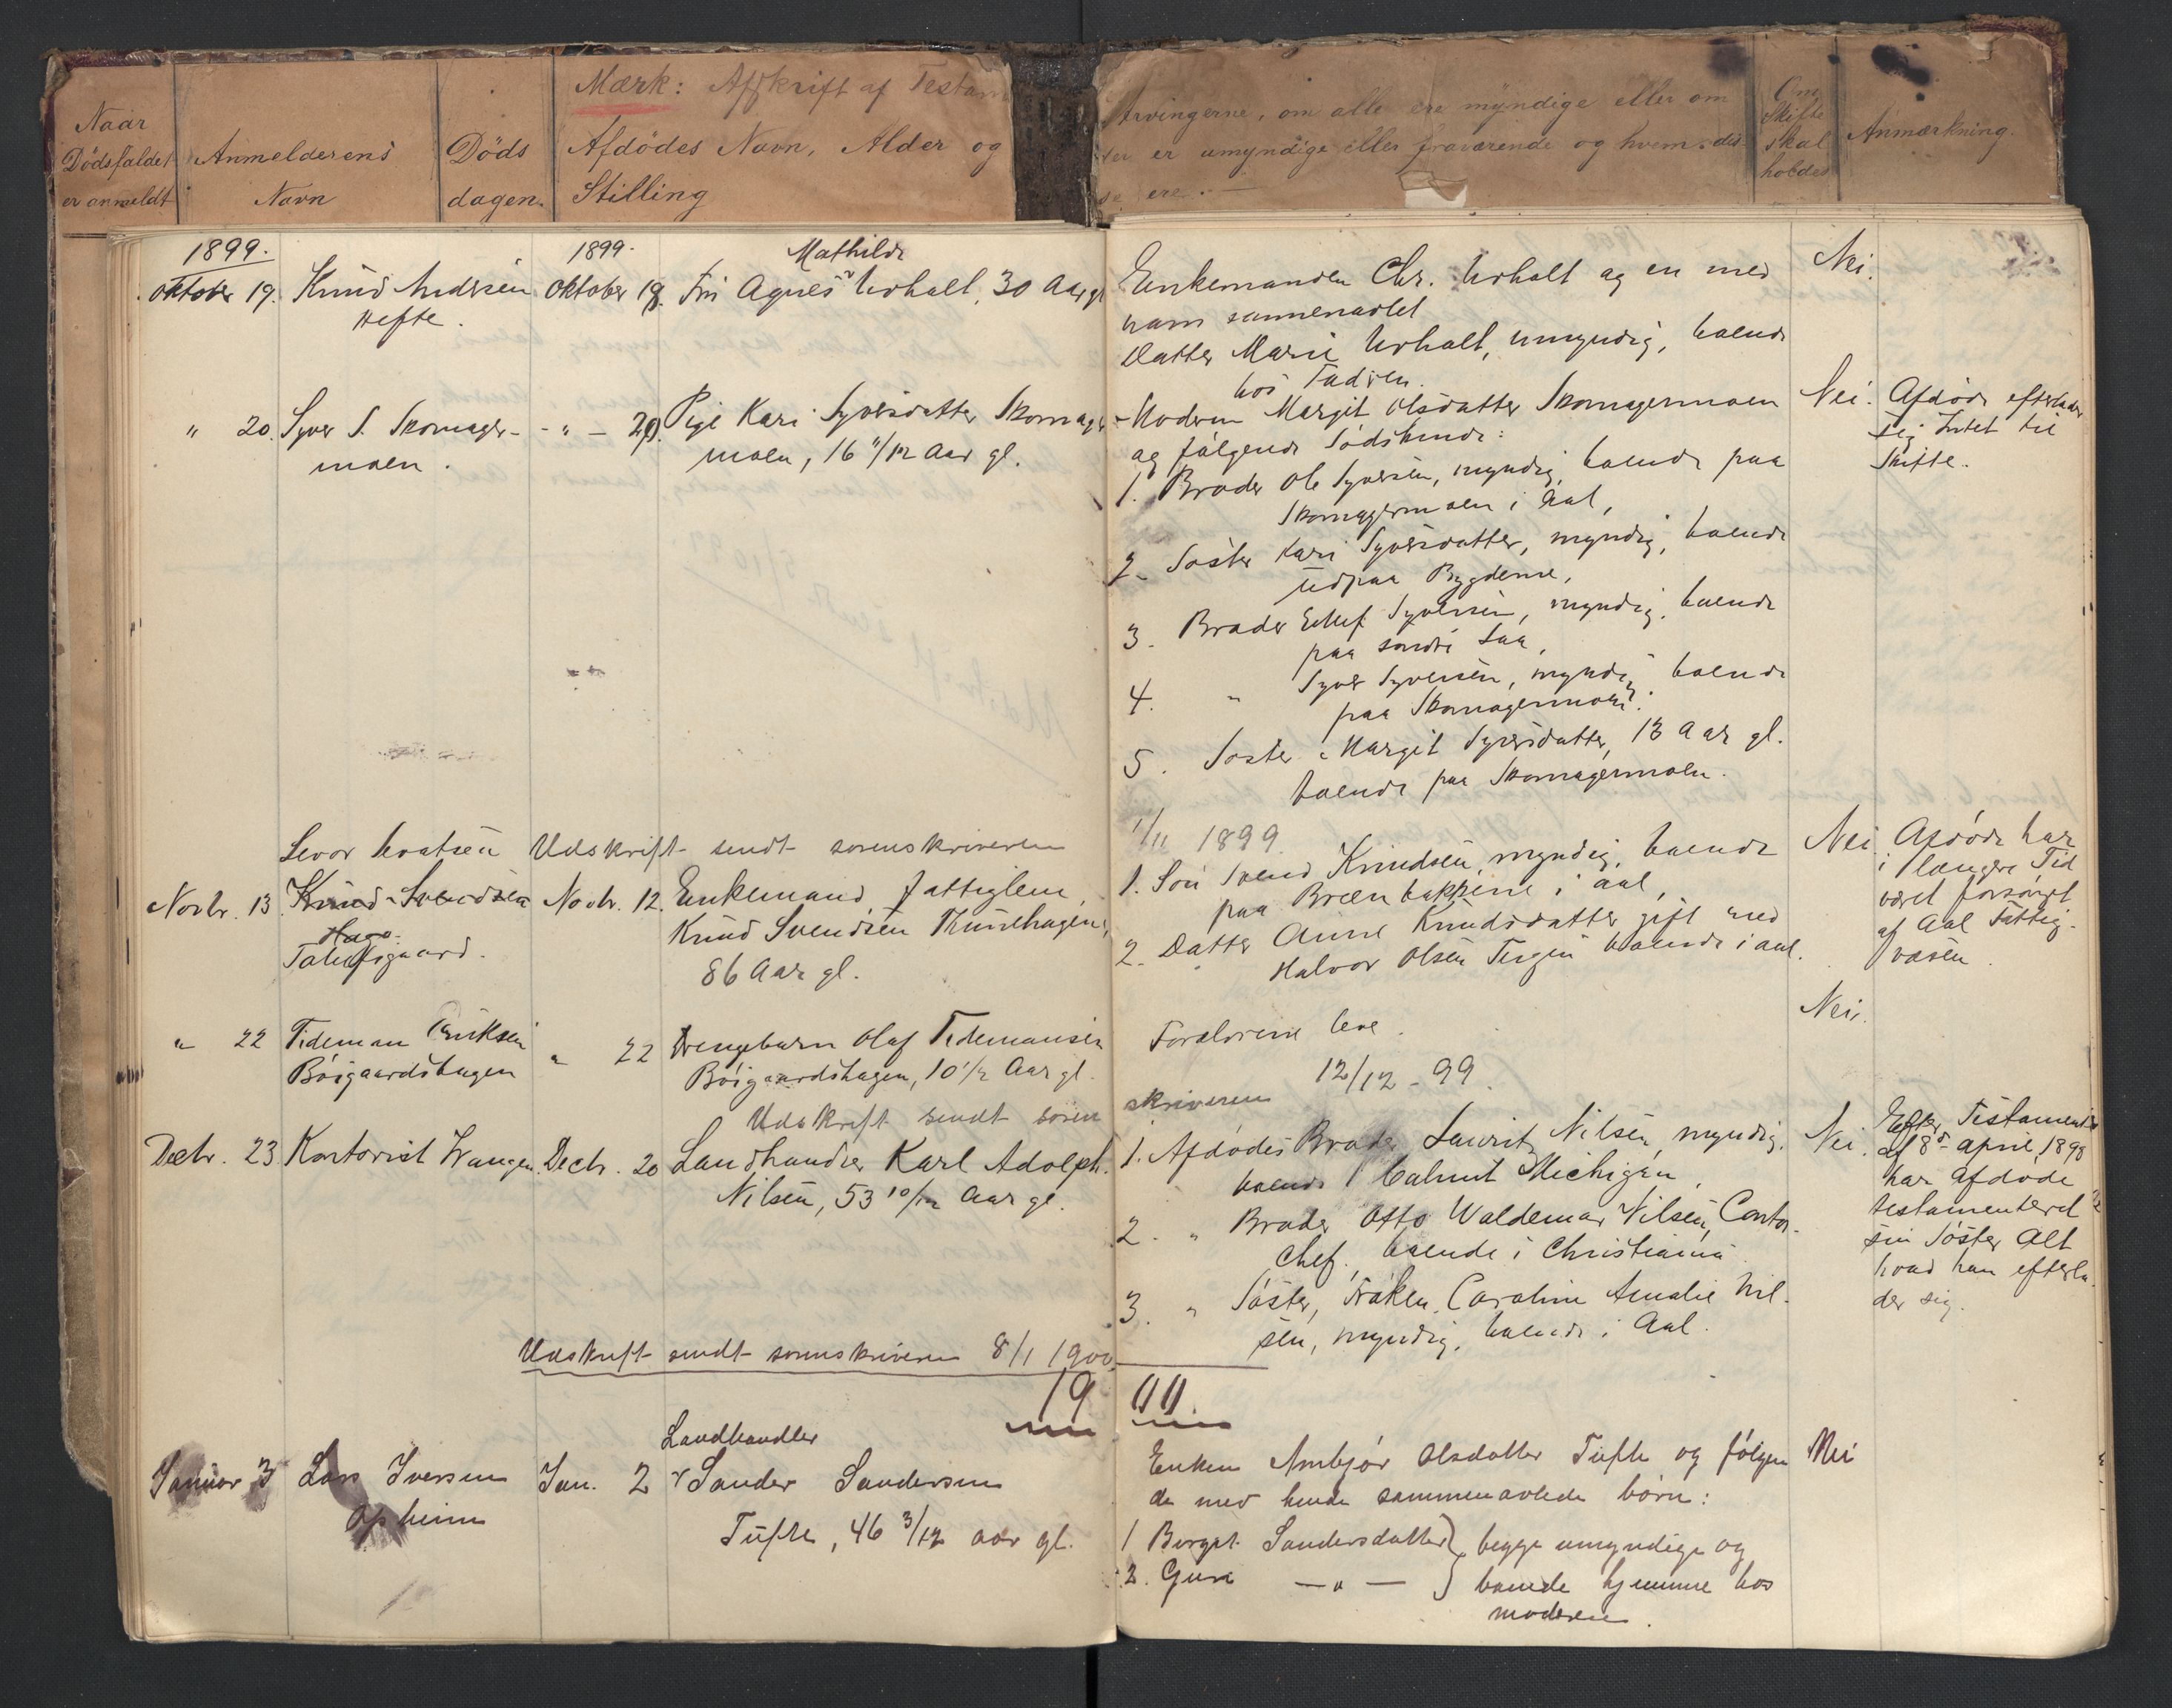 Mærk: Afskrift af Testam
Naar
Dödsfaldet
er anmeldt
Anmelderens
Navn
Döds
dagen.
Afdödes Navn, Alder og
Stilling
Arvingerne, om alle ere myndige eller om
er umyndige eller fraværende og hvem dis
se ere.
Om
Skifte
skal
holdes
Anmærkning.
1899.
1899.
Mathilde
Oktober 19. Knud Andersen Oktober 18. Fru Agnes Urholt, 30 Aar gl
Hefte.
Enkemanden Chr. Urholt og en med
ham sammenavlet
Datter Marie Urholt, umyndig, boende
hos Fadren.
Nei.
" 20. Syver S. Skomager- - " - 20. Pige Kari Syversdatter Skomager
moen. moen, 16 11/12 Aar gl.
Moderen Margit Olsdatter Skomagermoen
og følgende Södskende:
1. Broder Ole Syversen, myndig, boende paa
Skomagermoen i Aal,
2. Söster Kari Syversdatter, myndig, boende
udpaa Bygderne,
3. Broder Ellef Syversen, myndig, boende
paa søndre
4. " Syver Syversen, myndig, boende
paa Skomagermoen.
5. Söster Margit Syversdatter, 13 Aar gl.
boende paa Skomagermoen.
Nei. Afdöde efterlader
sig Intet til
Skifte.
Udskrift sendt sorenskriveren
1/11 1899
Levor
Novbr. 13 Knud Svendsen Novbr. 12. Enkemand, fattiglem,
Haga
Knud Svendsen
86 Aar gl.
1. Sön Svend Knudsen, myndig, boende
paa Bræn bakkene i Aal,
2. Datter Anne Knudsdatter gift med
Halvor Olsen boende i Aal.
Nei. Afdöde har
i længere Tid
været forsörget
af Aal Fattig-
væsen.
" 22 Tideman Eriksen " 22 Drengebarn Olaf Tidemansen
Böigaardshagen Böigaardshagen, 10 1/2 Aar gl.
Forældrene leve.
Nei.
Udskrift sendt soren
skriveren 12/12 - 99.
Decbr. 23 Kontorist Wangen. Decbr. 20 Landhandler Karl Adolph
Nilsen, 53 10/12 Aar gl.
1. Afdödes Broder Lauritz Nilsen, myndig,
boende i Calumt Michigan,
2. " Broder Otto Waldemar Nilsen, Contor-
Chef, boende i Christiania
3. " Söster, Fröken Caroline Amalie Nil-
sen, myndig, boende i Aal.
Nei. Efter Testamente
af 18de April 1898
har afdöde
testamenteret
sin Söster Alt
hvad han efterla
der sig.
Udskrift sendt sorenskriveren 8/1 1900.
19 00.
Januar 3 Lars Iversen Jan. 2
Opheim
Landhandler
Sander Sandersen
Tufte, 46 3/12 aar gl.
Enken Ambjör Olsdatter Tufte og fölgen
de med hende sammenavlede börn:
1 Birgit Sandersdatter } begge umyndige og
2. Guri — " — } boende hjemme hos
moderen.
Nei